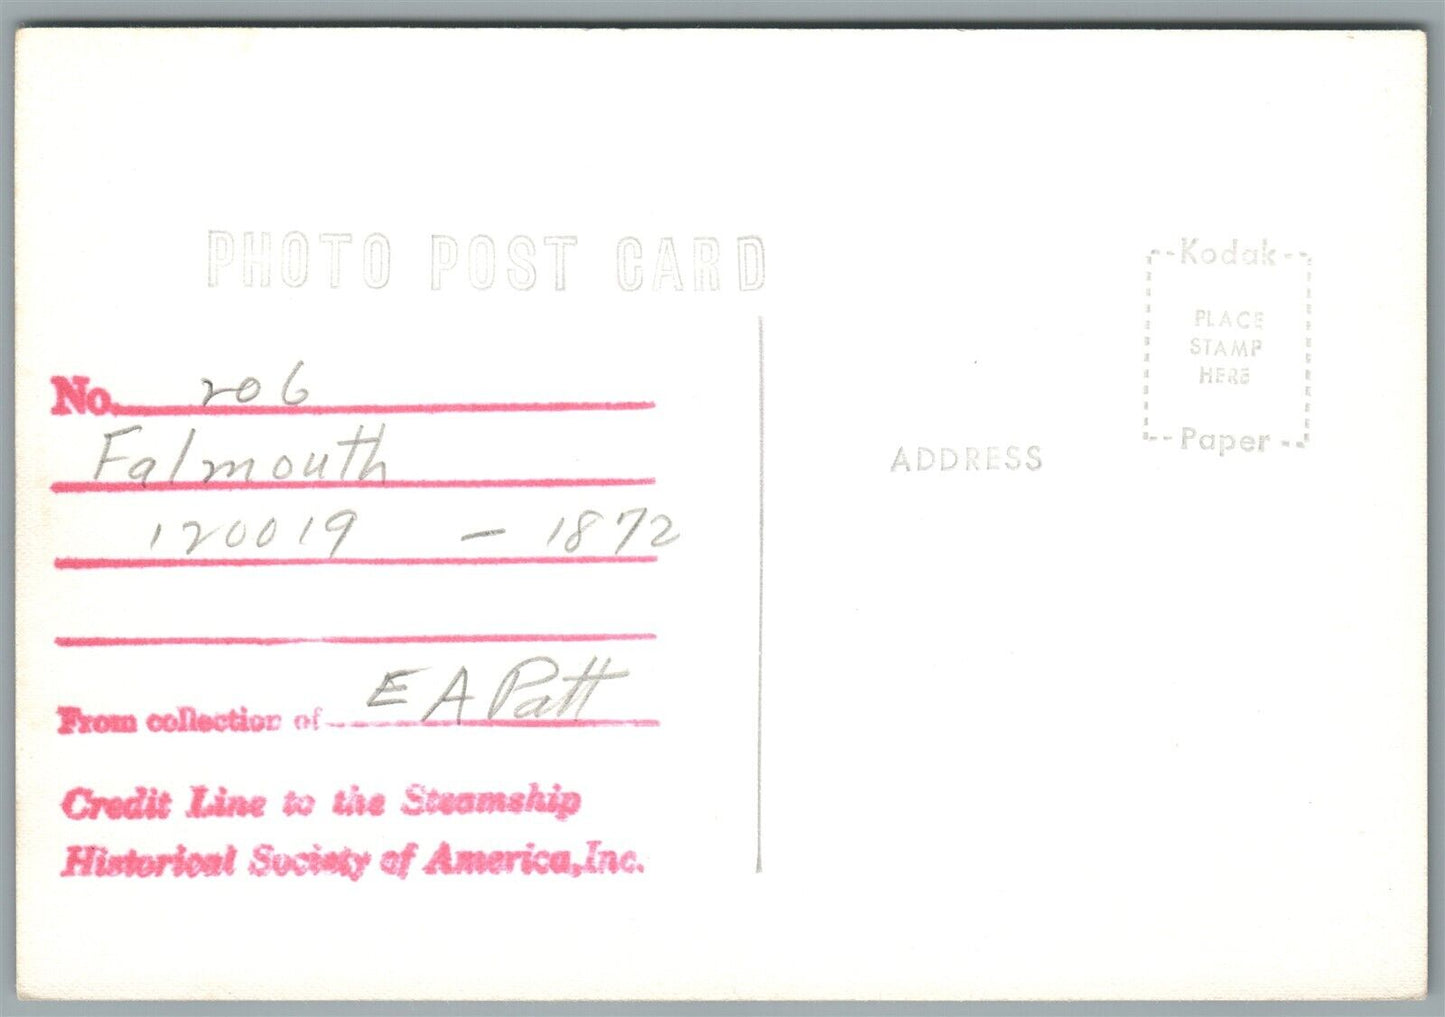 PHOTO POST CARD
Kodak
PLACE
STAMP
HERE
Paper
No. 206
Falmouth
120019 - 1872
From collection of E A Patt
Credit Line to the Steamship
Historical Society of America, Inc.
ADDRESS